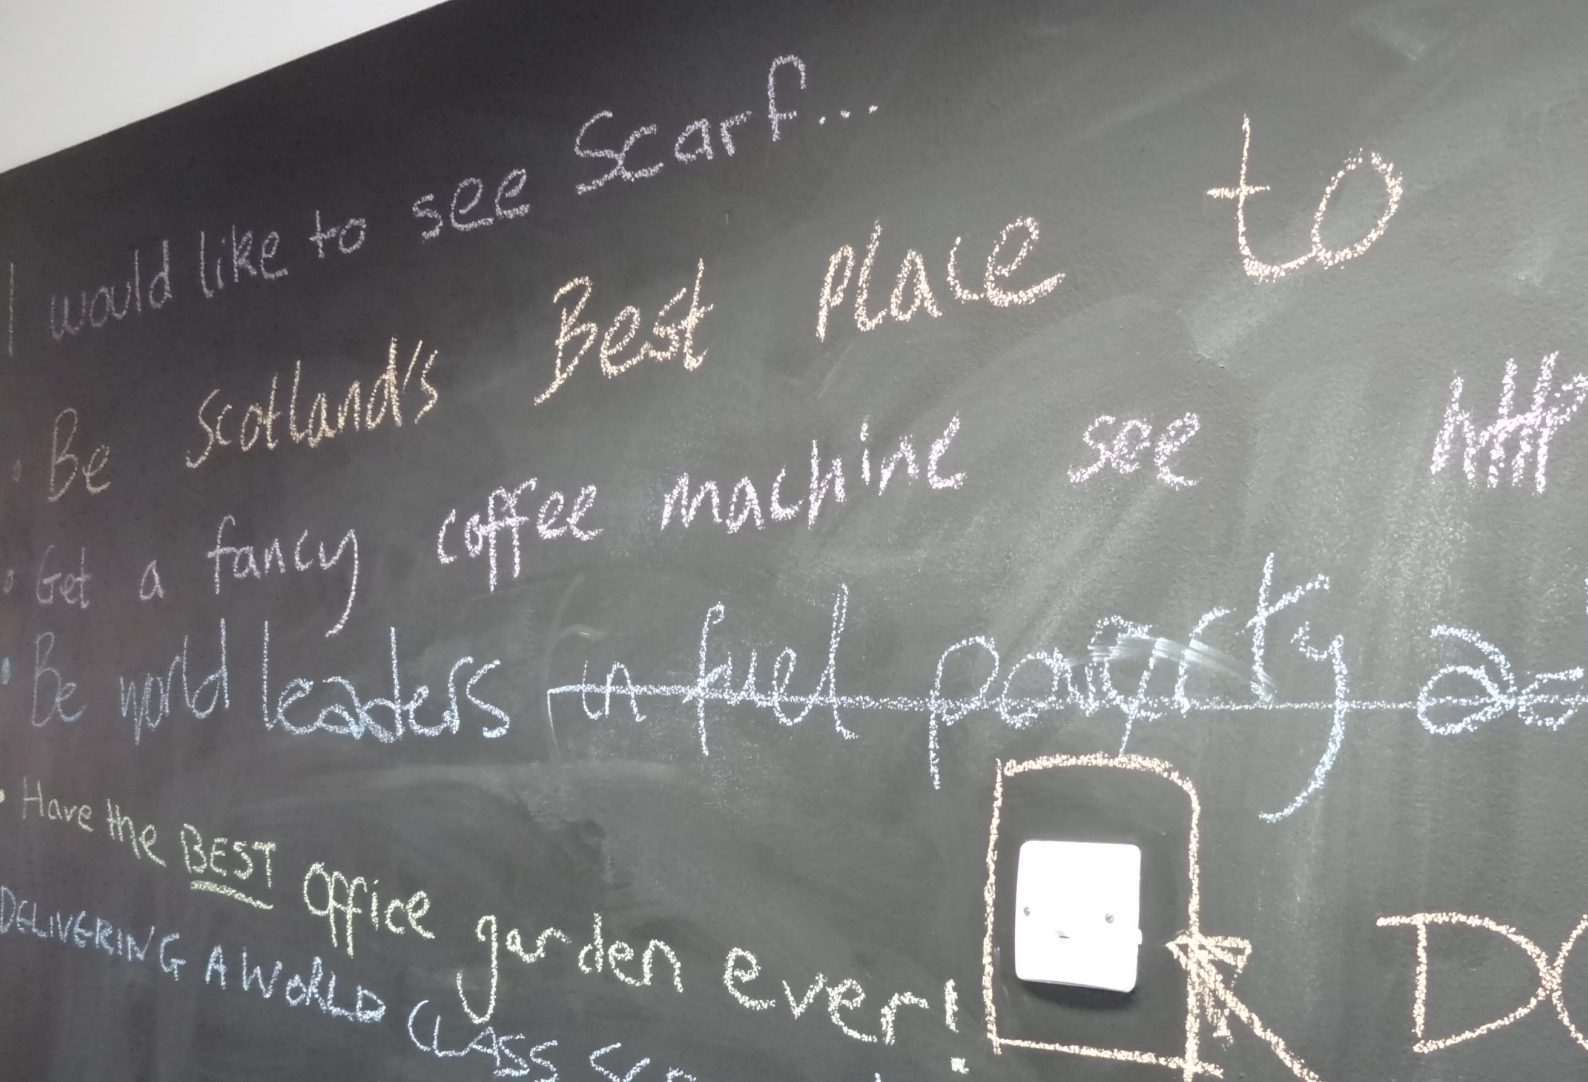 I would like to see Scarf...
• Be Scotland's Best Place to
• Get a fancy coffee machine see
• Be world leaders in fuel
• Have the BEST office garden ever!
DELIVERING A WORLD CLASS